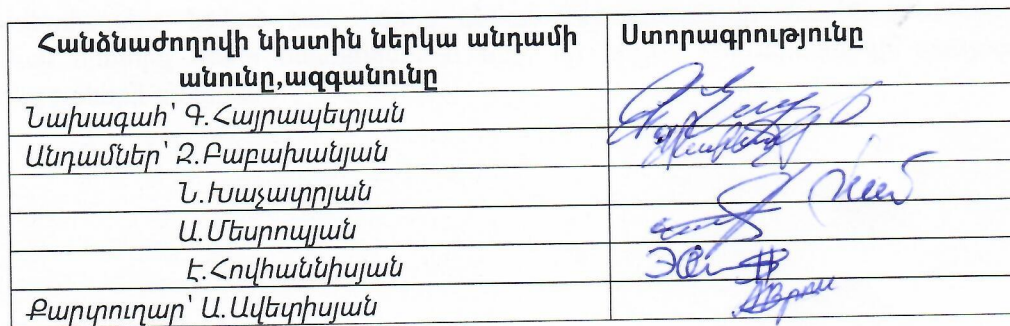 Հանձնաժողովի նիստին ներկա անդամի Ստորագրությունը
անունը,ազգանունը
Նախագահ՝ Գ.Հայրապետյան
Անդամներ՝ Զ.Բաբախանյան
Ն.Խաչատրյան
Ա.Մեսրոպյան
Է.Հովհաննիսյան
Քարտուղար՝ Ա.Ավետիսյան